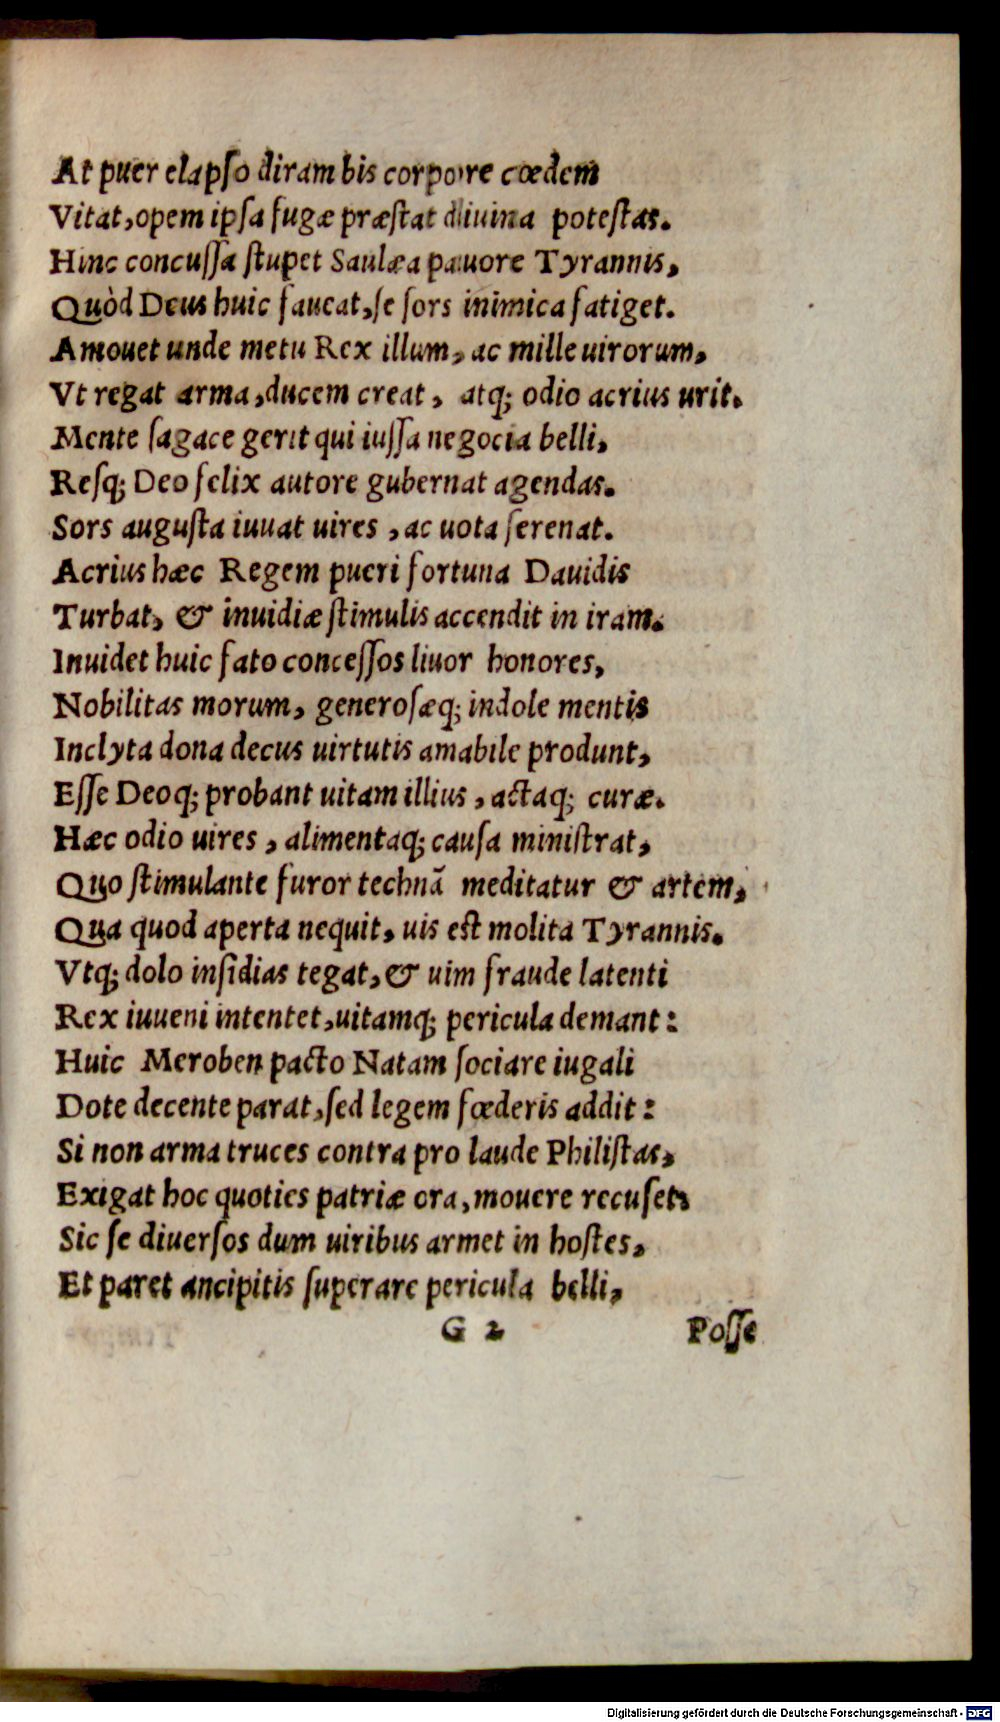 At puer elapſo diram bis corpore cœdem
Vitat, opem ipſa fugæ præſtat diuina poteſtas.
Hinc concuſſa ſtupet Saulæa pauore Tyrannis,
Quòd Deus huic faueat, ſe ſors inimica fatiget.
Amouet unde metu Rex illum, ac mille uirorum,
Vt regat arma, ducem creat, atq; odio acrius urit.
Mente ſagace gerit qui iuſſa negocia belli,
Reſq; Deo felix autore gubernat agendas.
Sors auguſta iuuat uires, ac uota ſerenat.
Acrius hæc Regem pueri fortuna Dauidis
Turbat, & inuidiæ ſtimulis accendit in iram.
Inuidet huic fato conceſſos liuor honores,
Nobilitas morum, generoſæq; indole mentis
Inclyta dona decus uirtutis amabile produnt,
Eſſe Deoq; probant uitam illius, actaq; curæ.
Hæc odio uires, alimentaq; cauſa miniſtrat,
Quo ſtimulante furor technā meditatur & artem,
Qua quod aperta nequit, uis eſt molita Tyrannis.
Vtq; dolo inſidias tegat, & uim fraude latenti
Rex iuueni intentet, uitamq; pericula demant:
Huic Meroben pacto Natam ſociare iugali
Dote decente parat, ſed legem fœderis addit:
Si non arma truces contra pro laude Philiſtas,
Exigat hoc quoties patriæ ora, mouere recuſet,
Sic ſe diuerſos dum uiribus armet in hoſtes,
Et paret ancipitis ſuperare pericula belli,
G 2 Poſſe
Digitalisierung gefördert durch die Deutsche Forschungsgemeinschaft - DFG